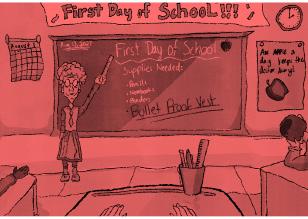 First Day of School!!!
August
Aug 13, 2022
First Day of School
Supplies Needed:
- Pencils
- Notebooks
- Binders
- Bullet Proof Vest
An APPLE a
day keeps the
doctor away!